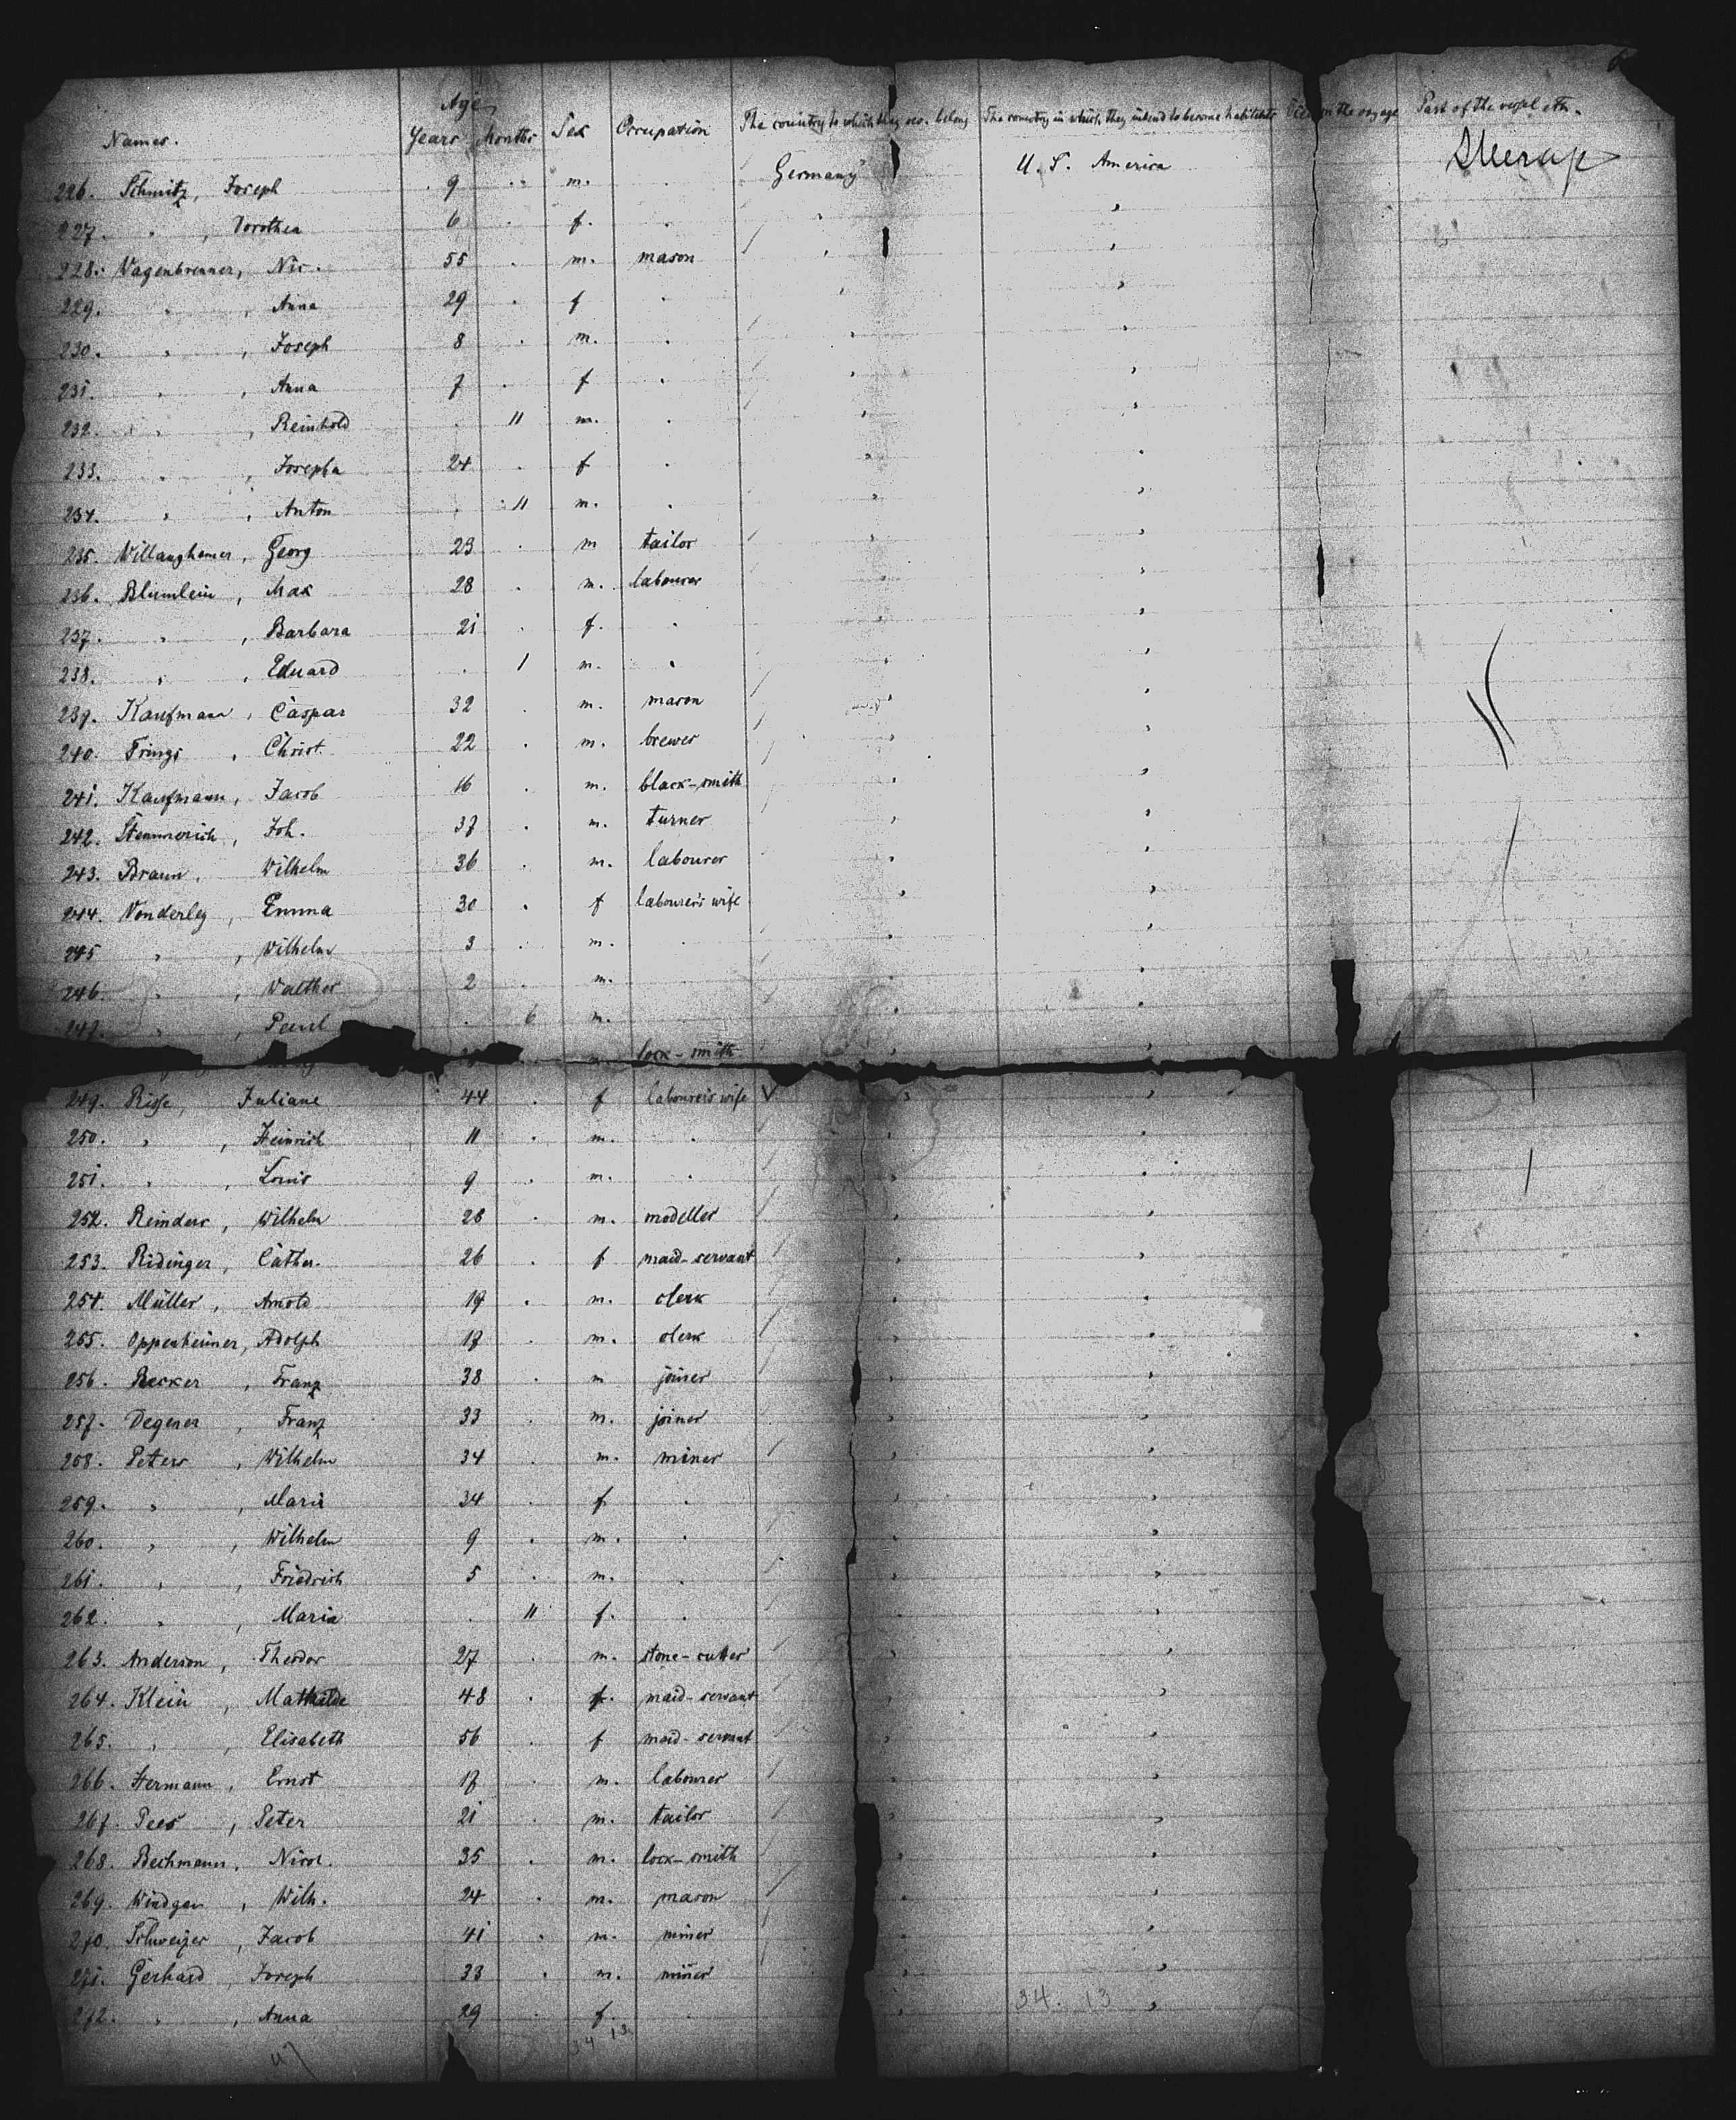 Age
Names. Years Months Sex Occupation The country to which they sev. belong The country in which they intend to become habitants Died on the voyage Part of the vessel etc.
226. Schmitz, Joseph 9 . m. . Germany U. S. America Steerage
227. " , Dorothea 6 . f. . " "
228. Wagenbrenner, Nic. 55 . m. mason " "
229. " , Anna 29 . f . " "
230. " , Joseph 8 . m. . " "
231. " , Anna 7 . f . " "
232. " , Reinhold . 11 m. . " "
233. " , Josepha 24 . f . " "
234. " , Anton . 11 m. . " "
235. Willaughemer, Georg 23 . m tailor " "
236. Blümlein, Max 28 . m. labourer " "
237. " , Barbara 21 . f. . " "
238. " , Eduard . 1 m. . " "
239. Kaufmann, Caspar 32 . m. mason " "
240. Frings, Christ. 22 . m. brewer " "
241. Kaufmann, Jacob 16 . m. black-smith " "
242. Stemmerich, Joh. 37 . m. turner " "
243. Braun, Wilhelm 36 . m. labourer " "
244. Vonderley, Emma 30 . f labourer's wife " "
245 " , Wilhelm 3 . m. . " "
246. " , Walther 2 . m. . " "
247. " , Paul . 6 m. . " "
lock-smith " "
249. Risse, Juliane 44 . f labourer's wife " "
250. " , Heinrich 11 . m. . " "
251. " , Louis 9 . m. . " "
252. Reinders, Wilhelm 28 . m. modeller " "
253. Ridinger, Cather. 26 . f maid-servant " "
254. Müller, Arnold 19 . m. clerk " "
255. Oppenheimer, Adolph 17 . m. clerk " "
256. Recker, Franz 38 . m joiner " "
257. Degener, Franz 33 . m. joiner " "
258. Peters, Wilhelm 34 . m. miner " "
259. " , Maria 34 . f. . " "
260. " , Wilhelm 9 . m. . " "
261. " , Friedrich 5 . m. . " "
262. " , Maria . 11 f. . " "
263. Anderson, Theodor 27 . m. stone-cutter " "
264. Klein, Mathilde 48 . f. maid-servant " "
265. " , Elisabeth 56 . f maid-servant " "
266. Hermann, Ernst 17 . m. labourer " "
267. Pees, Peter 21 . m. tailor " "
268. Bechmann, Nicol. 35 . m. lock-smith " "
269. Windgen, Wilh. 24 . m. mason " "
270. Schweizer, Jacob 41 . m. miner " "
271. Gerhard, Joseph 33 . m. miner " "
272. " , Anna 29 . f. . " "
34. 13
34 13
47